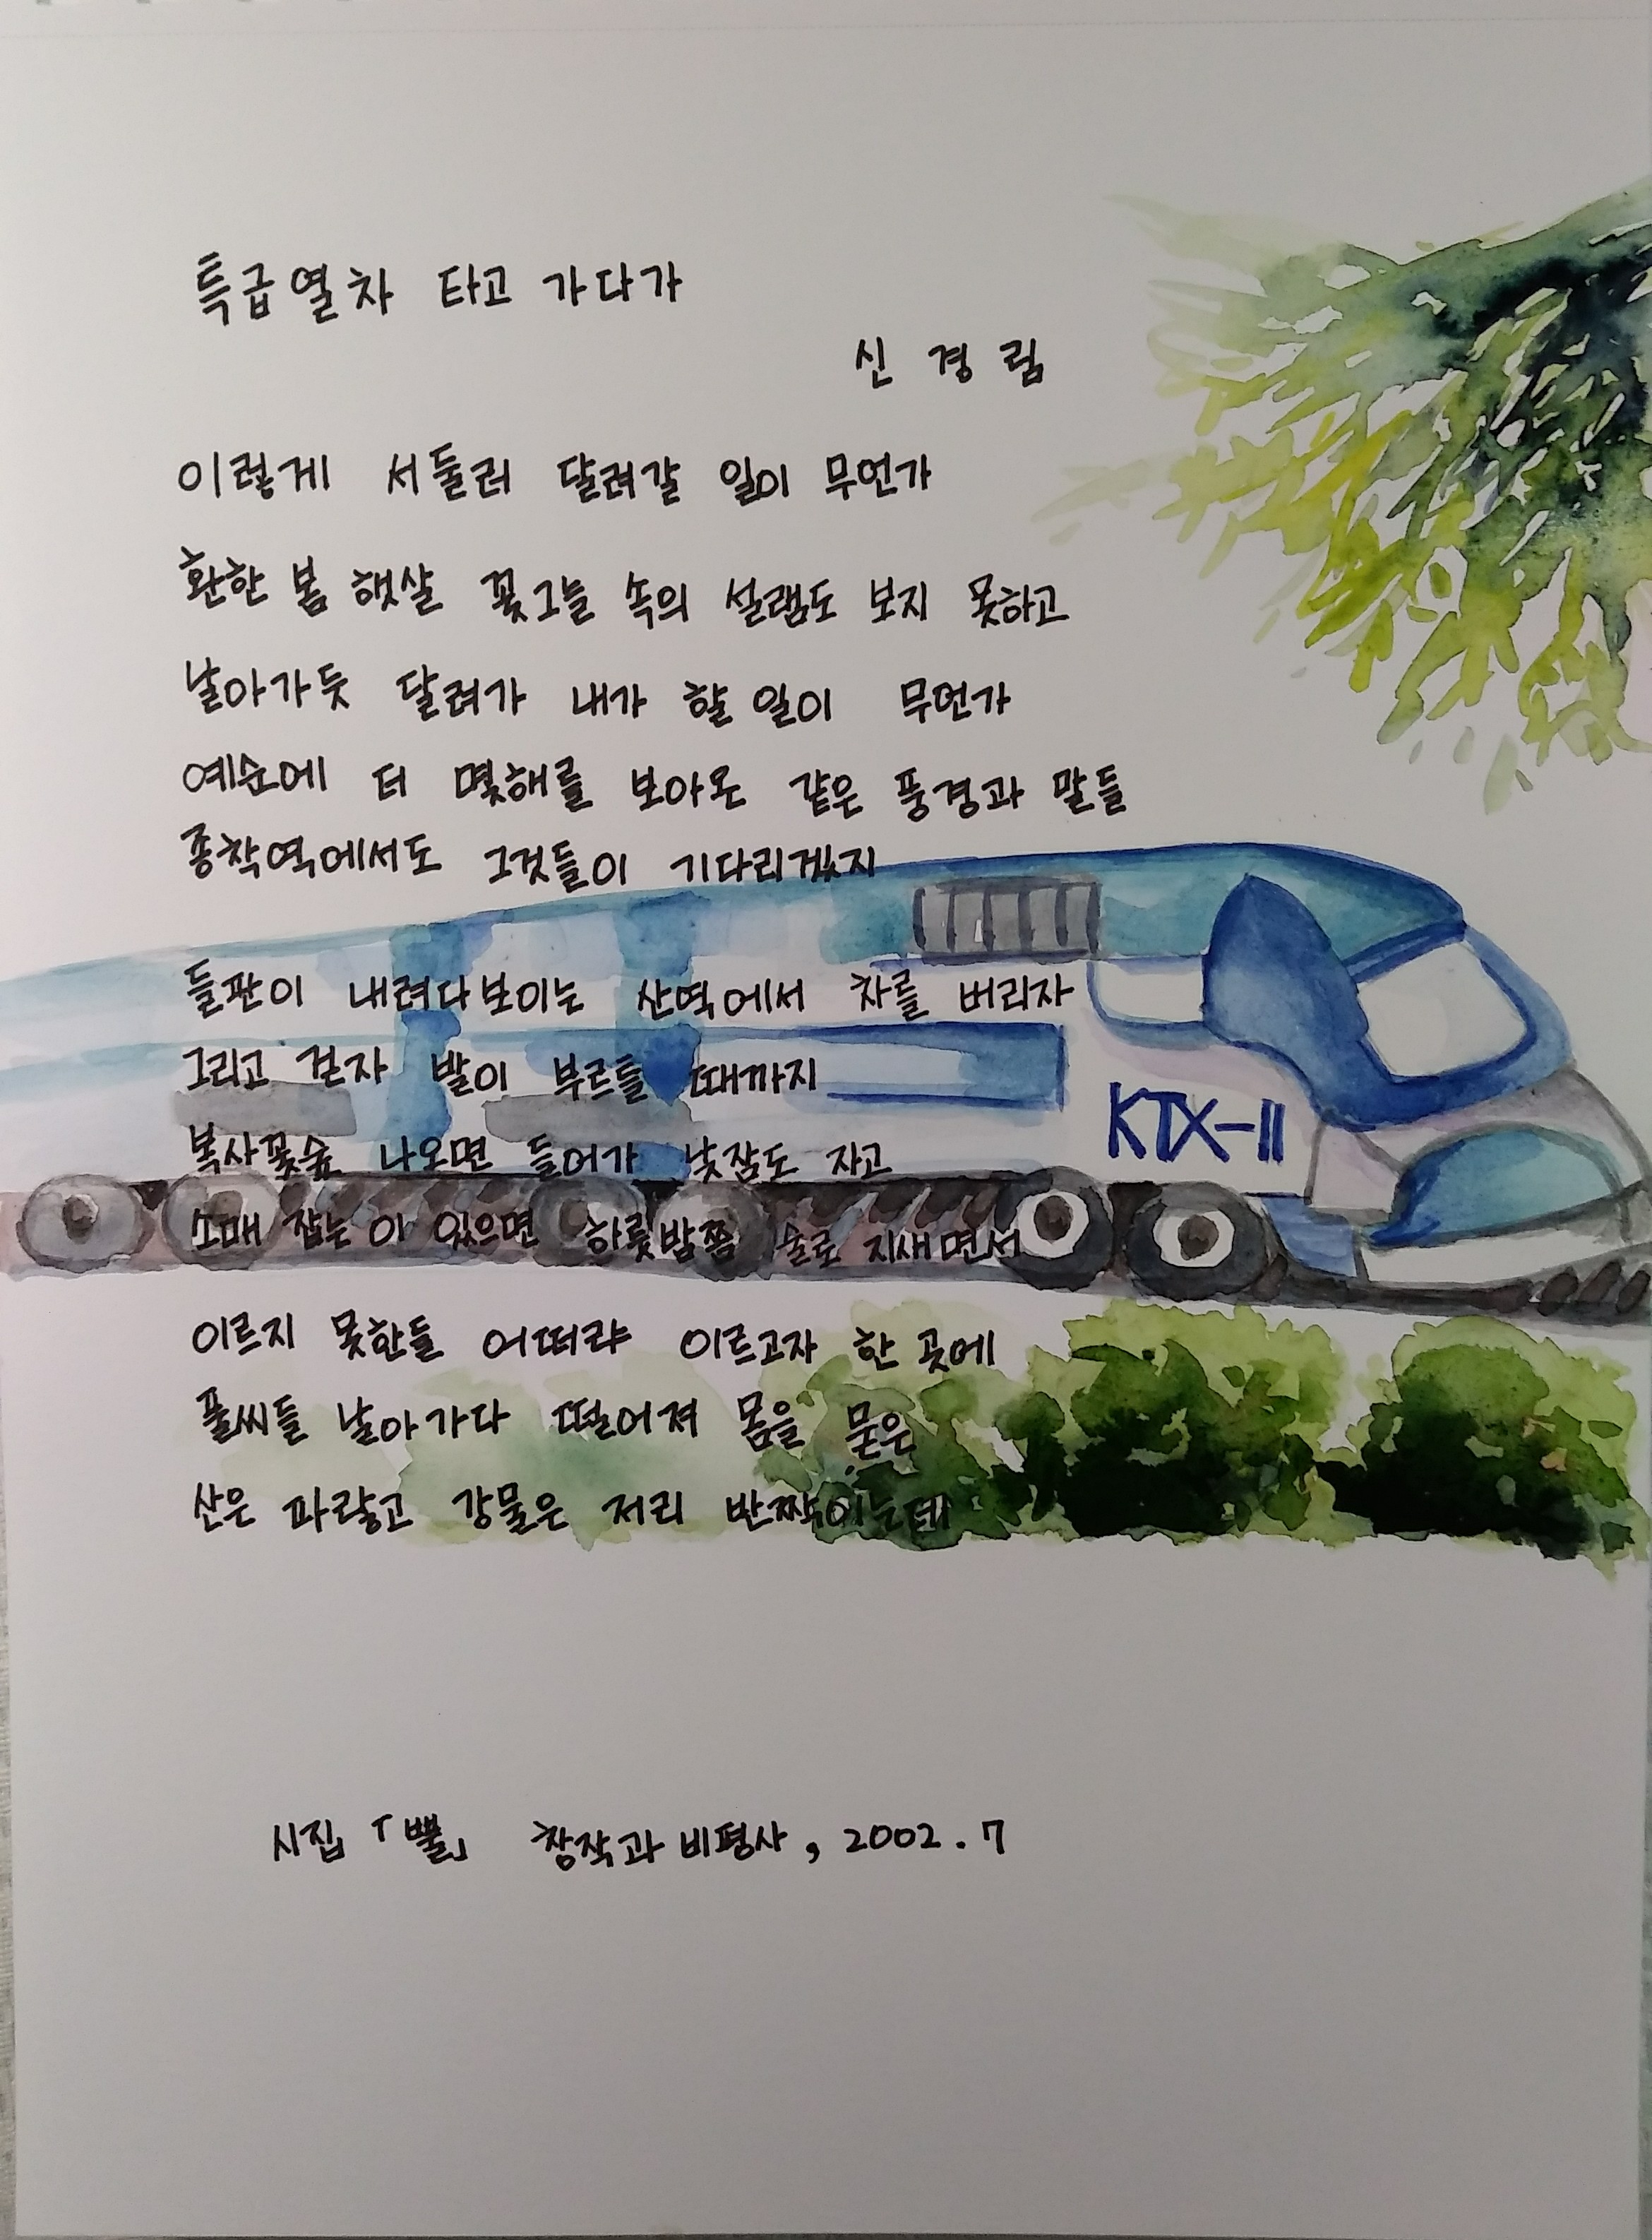 특급열차 타고 가다가
신경림
이렇게 서둘러 달려갈 일이 무언가
환한 봄 햇살 꽃그늘 속의 설램도 보지 못하고
날아가듯 달려가 내가 할 일이 무언가
예순에 더 몇해를 보아온 같은 풍경과 말들
종착역에서도 그것들이 기다리겠지
들판이 내려다보이는 산역에서 차를 버리자
그리고 걷자 발이 부르틀 때까지
복사꽃숲 나오면 들어가 낮잠도 자고
소매 잡는 이 있으면 하룻밤쯤 술로 지새면서
이르지 못한들 어떠랴 이르고자 한 곳에
풀씨들 날아가다 떨어져 몸을 묻은
산은 파랗고 강물은 저리 반짝이는데
KTX-II
시집 「뿔」 창작과 비평사, 2002.7